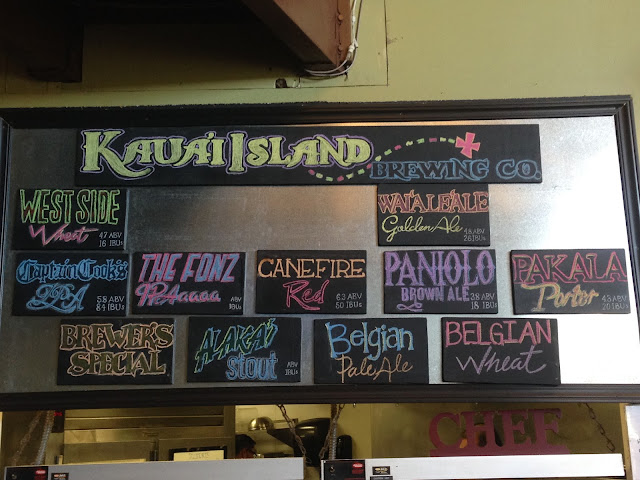 KAUA'I ISLAND
BREWING CO.
WEST SIDE
Wheat
4.7 ABV
16 IBUs
WAI'ALE'ALE
Golden Ale
4.8 ABV
26 IBUs
Captain Cook's
IPA
5.8 ABV
84 IBUs
THE FONZ
IPAaaaa
ABV
IBUs
CANEFIRE
Red
6.3 ABV
50 IBUs
PANIOLO
BROWN ALE
ABV
18 IBUs
PAKALA
Porter
4.3 ABV
20 IBUs
BREWER'S
SPECIAL
ALAKA'I
stout
ABV
IBUs
Belgian
Pale Ale
BELGIAN
Wheat
CHEF